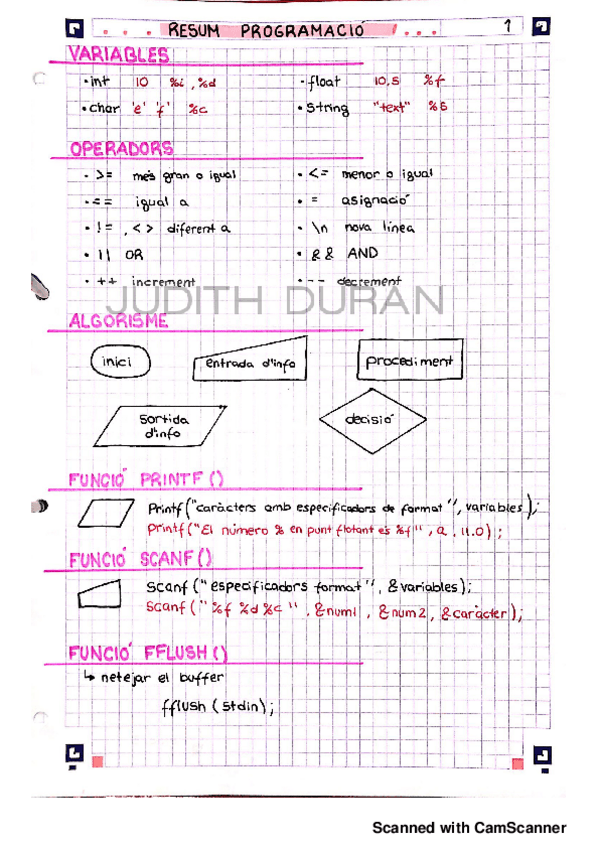 . . . RESUM PROGRAMACIÓ . . . 1
VARIABLES
• int 10 %i, %d • float 10,5 %f
• char 'e' 'f' %c • string "text" %s
OPERADORS
• >= més gran o igual • <= menor o igual
• == igual a • = asignació
• !=, <> diferent a • \n nova línea
• || OR • && AND
• ++ increment • -- decrement
JUDITH DURAN
ALGORISME
inici entrada d'info procediment
sortida d'info decisió
FUNCIÓ PRINTF()
Printf("caràcters amb especificadors de format", variables);
Printf("El número % en punt flotant és %f", a, 11.0);
FUNCIÓ SCANF()
Scanf("especificadors format", &variables);
Scanf("%f %d %c", &num1, &num2, &caràcter);
FUNCIÓ FFLUSH()
↳ netejar el buffer
fflush(stdin);
Scanned with CamScanner